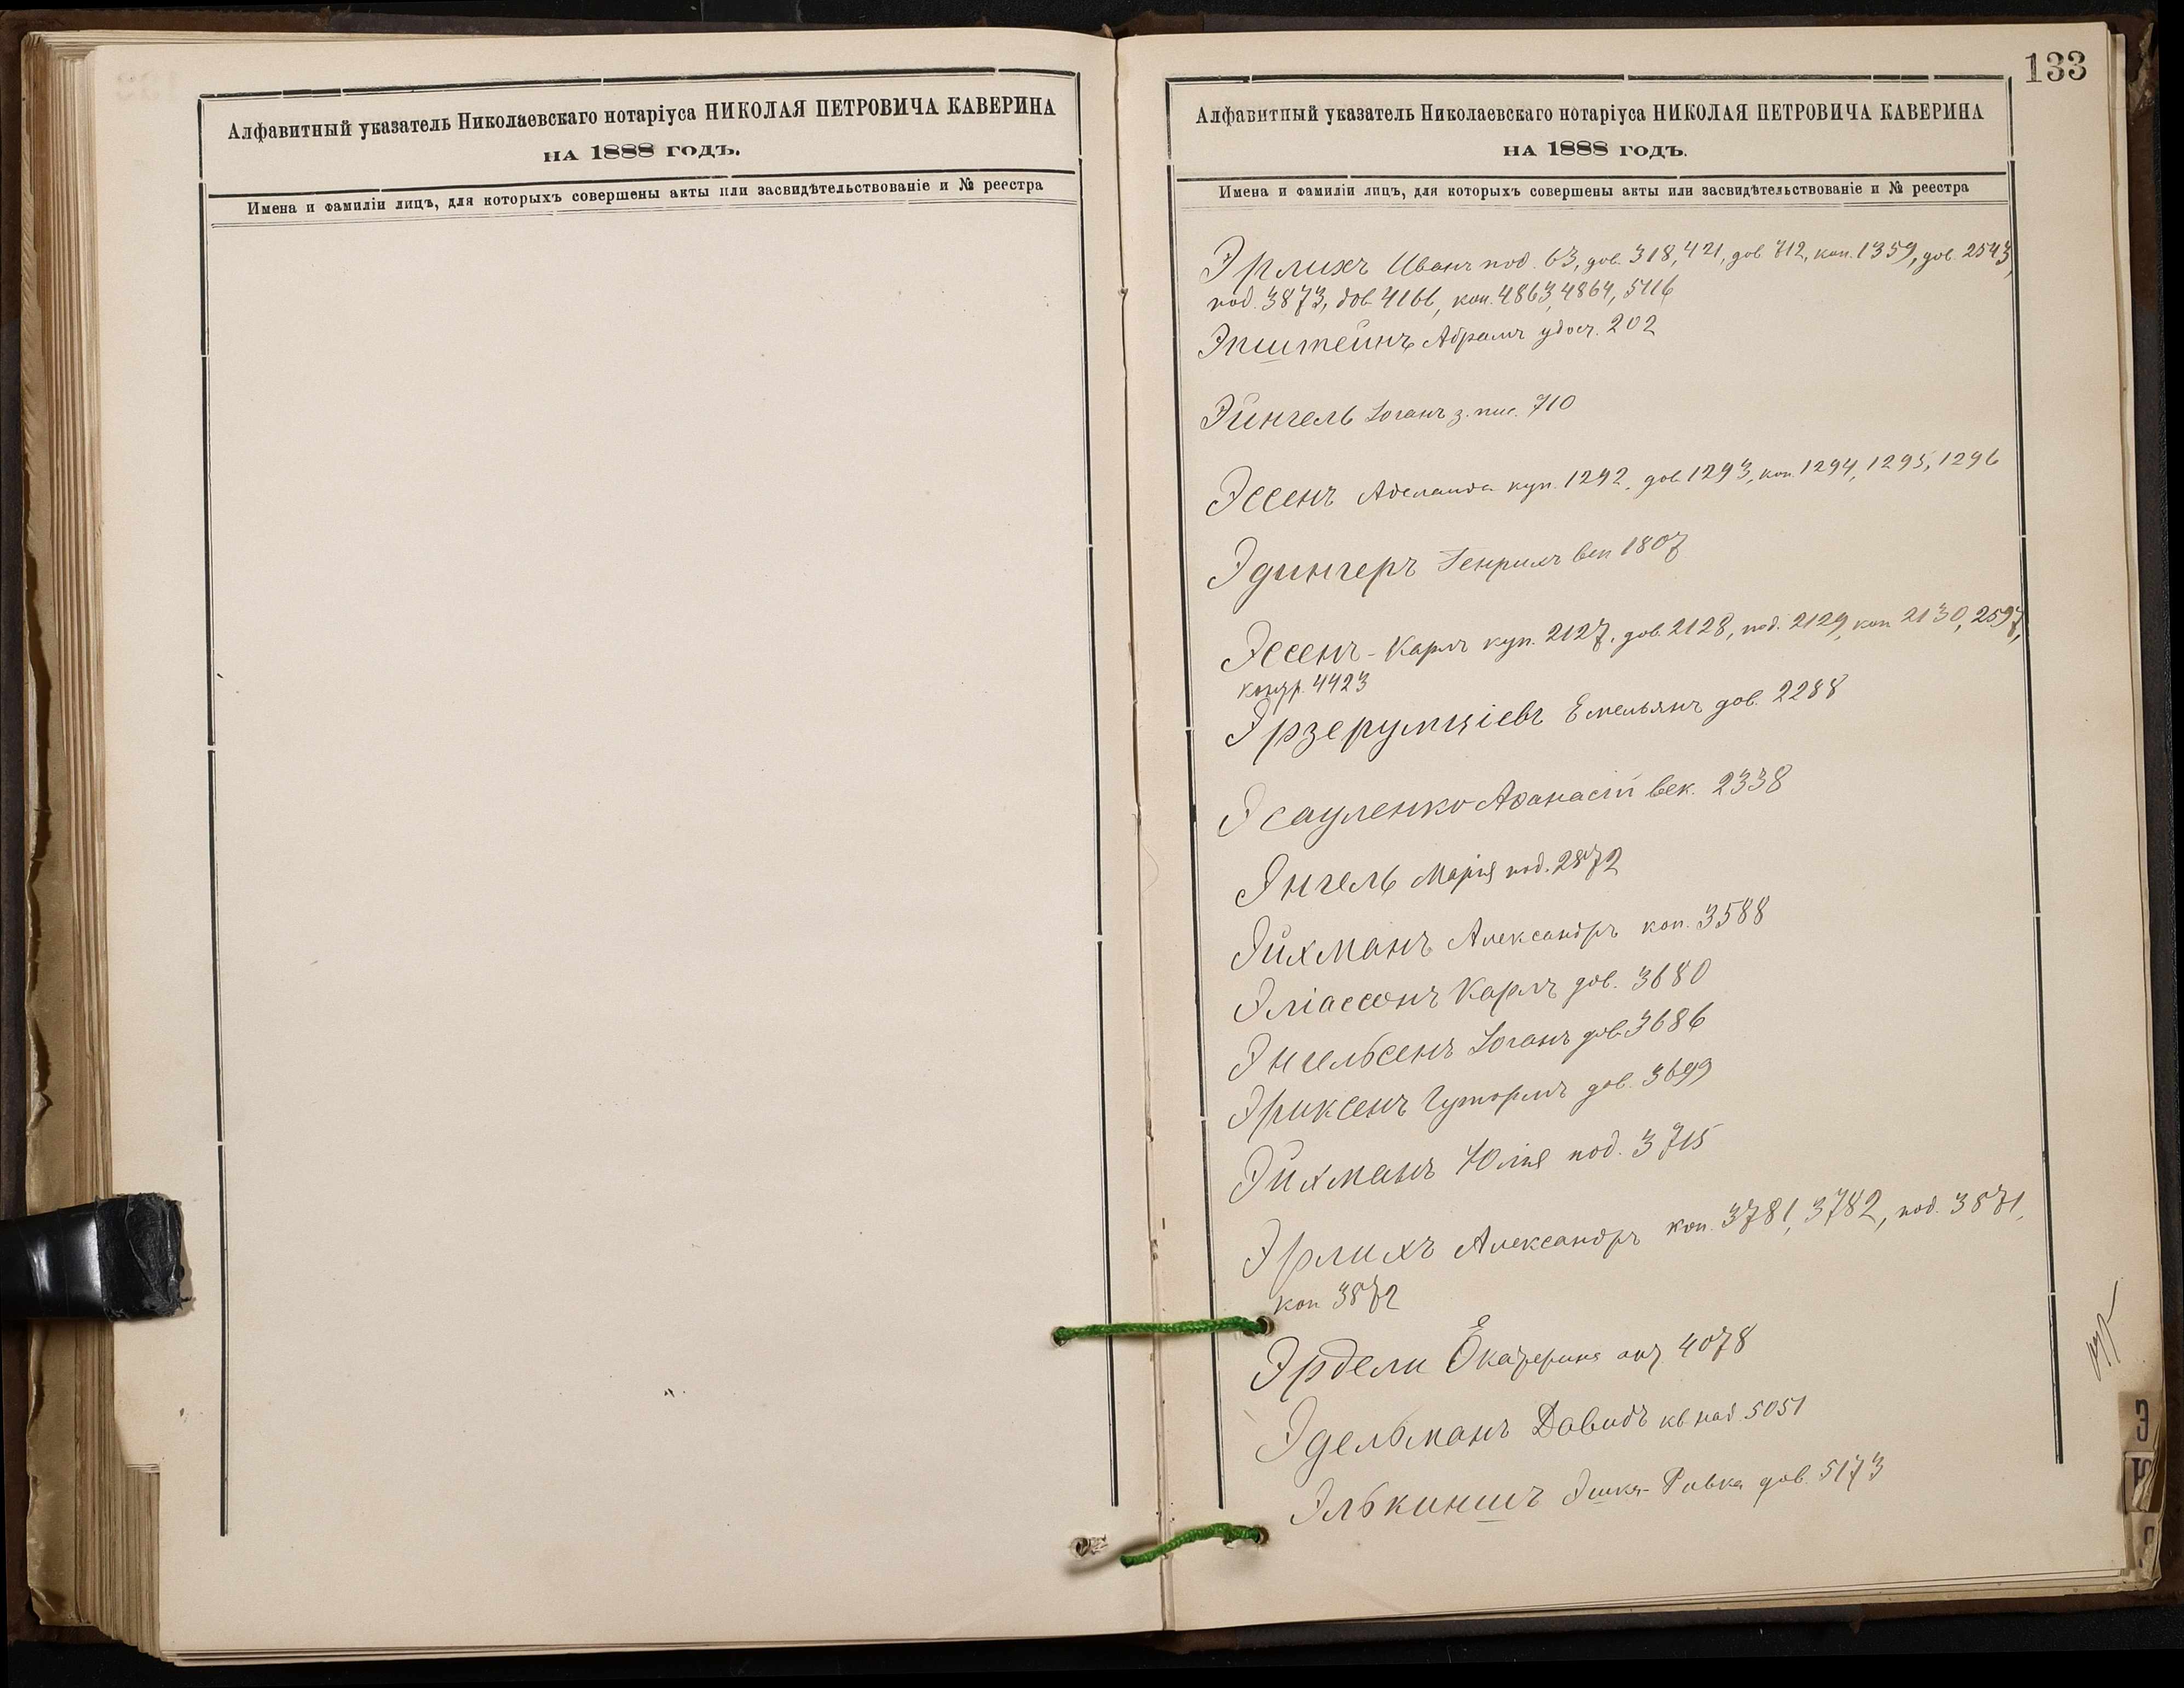 Алфавитный указатель Николаевскаго нотаріуса НИКОЛАЯ ПЕТРОВИЧА КАВЕРИНА
НА 1888 ГОДЪ.
Имена и фамиліи лицъ, для которыхъ совершены акты или засвидѣтельствованіе и № реестра
133
Алфавитный указатель Николаевскаго нотаріуса НИКОЛАЯ ПЕТРОВИЧА КАВЕРИНА
НА 1888 ГОДЪ.
Имена и фамиліи лицъ, для которыхъ совершены акты или засвидѣтельствованіе и № реестра
Эрлихъ Иванъ под. 63, дов. 318, 421, дов 712, коп. 1359, дов. 2543,
под. 3873, дов 4166, коп. 4863, 4864, 5116
Эпштейнъ Абрамъ удост. 202
Эйнгель Іоганъ з. пис. 710
Эссенъ Аделаида куп. 1292, дов. 1293, коп. 1294, 1295, 1296
Эдингеръ Генрихъ век 1807
Эссенъ - Карлъ куп. 2127, дов. 2128, под. 2129, коп 2130, 2597,
контр. 4423
Эрзерумціевъ Емельянъ дов. 2288
Эсауленко Афанасій век. 2338
Энгель Марія под. 2872
Эйхманъ Александръ коп. 3588
Эліассонъ Карлъ дов. 3680
Энгельсенъ Іоганъ дов 3686
Эриксенъ Гутормъ дов. 3699
Эйхманъ Юлія под. 3715
Эрлихъ Александръ коп. 3781, 3782, под. 3871,
коп 3872
Эрдели Екатерина 4078
Эдельманъ Давидъ кв над. 5051
Элькиншъ Эшка-Ривка дов. 5173
Э